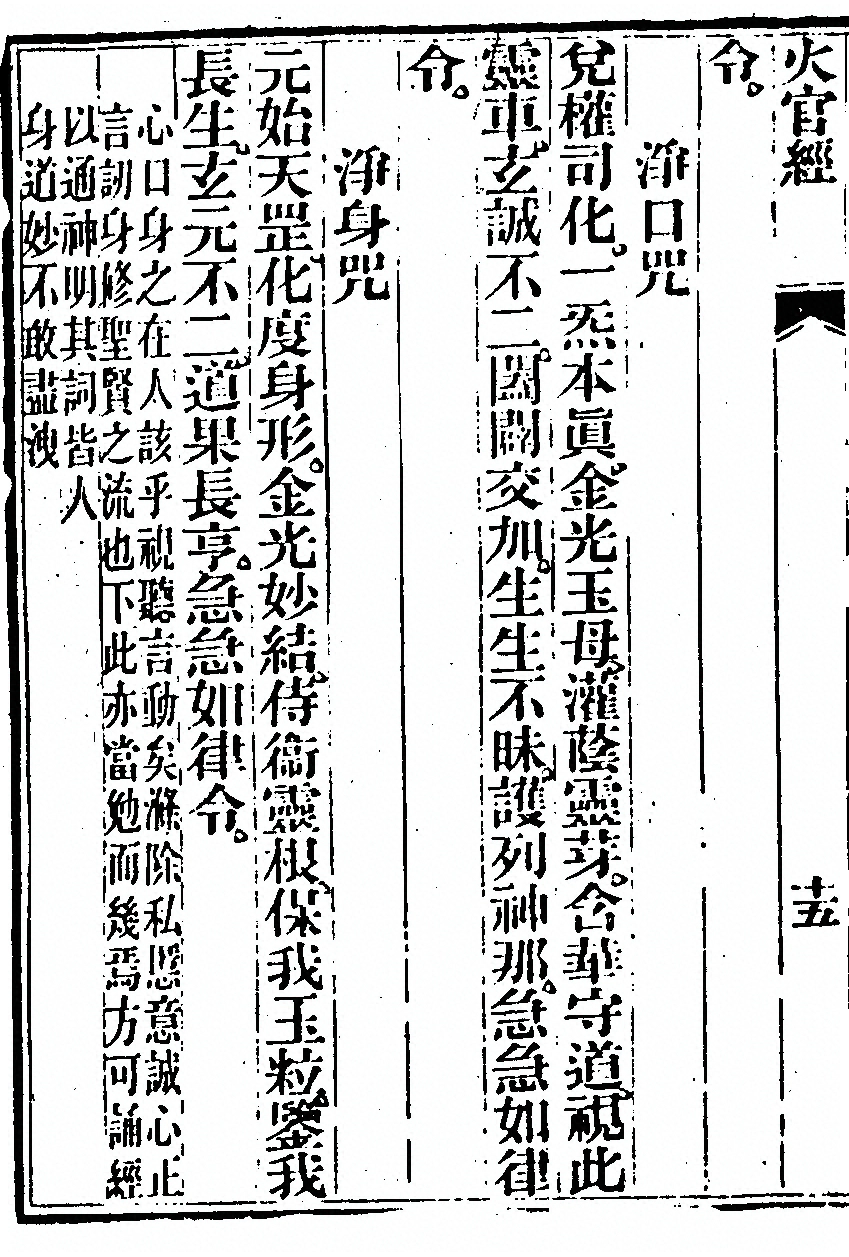 火官經 十五
令。
淨口咒
兌權司化。一炁本眞。金光玉母。灌蔭靈芽。含華守道。視此
靈車。玄誠不二。闔闢交加。生生不昧。護列神那。急急如律
令。
淨身咒
元始天罡。化度身形。金光妙結。侍衞靈根。保我玉粒。鑒我
長生。玄元不二。道果長亨。急急如律令。
心口身之在人該乎視聽言動矣滌除私慝意誠心正
言訒身修聖賢之流也下此亦當勉而幾焉方可誦經
以通神明其詞皆人
身道妙不敢盡洩